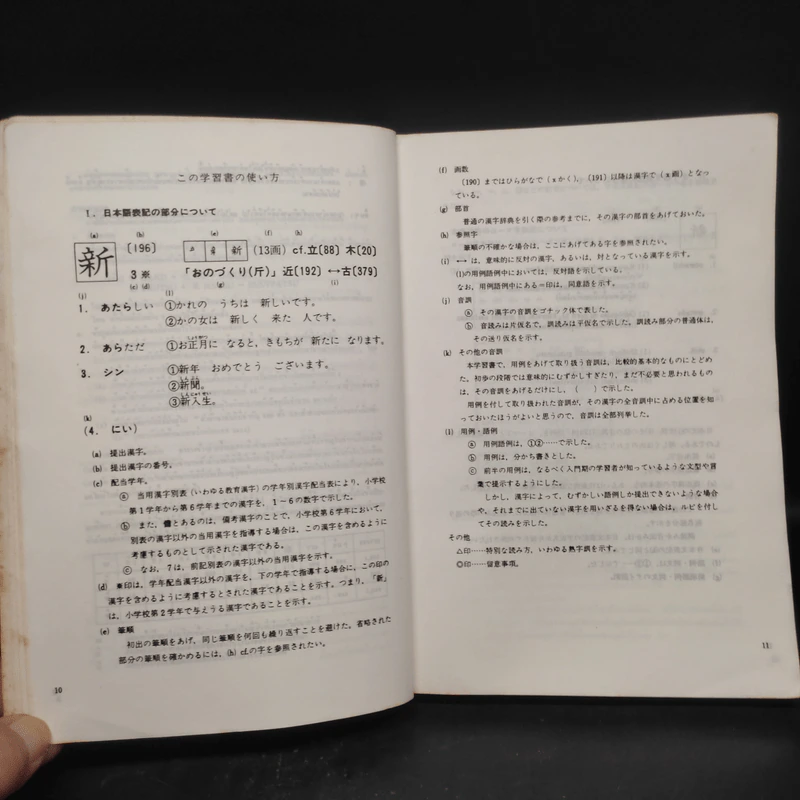 この学習書の使い方
1. 日本語表記の部分について
(a) (b) (e) (f) (h)
新 〔196〕 新 (13画) cf.立〔88〕 木〔20〕
3 ※ 「おのづくり(斤)」 近〔192〕 ↔古〔379〕
(c) (d) (g) (i)
(j) (l)
1. あたらしい ①かれの うちは 新しいです。
②かの女は 新しく 来た 人です。
2. あらただ ①お正月に なると、きもちが 新たに なります。
3. シン ①新年 おめでとう ございます。
②新聞。
③新入生。
(k)
(4. にい)
(a) 提出漢字。
(b) 提出漢字の番号。
(c) 配当学年。
ⓐ 当用漢字別表(いわゆる教育漢字)の学年別漢字配当表により、小学校
第1学年から第6学年までの漢字を、1－6の数字で示した。
ⓑ また、備とあるのは、備考漢字のことで、小学校第6学年において、
別表の漢字以外の当用漢字を指導する場合は、この漢字を含めるように
考慮するものとして示された漢字である。
ⓒ なお、7は、前記別表の漢字以外の当用漢字を示す。
(d) ※印は、学年配当漢字以外の漢字を、下の学年で指導する場合に、この印の
漢字を含めるように考慮するとされた漢字であることを示す。つまり、「新」
は、小学校第2学年で与えうる漢字であることを示す。
(e) 筆順
初出の筆順をあげ、同じ筆順を何回も繰り返すことを避けた。省略された
部分の筆順を確かめるには、(h) cf.の字を参照されたい。
10
(f) 画数
〔190〕まではひらがなで(xかく)、〔191〕以降は漢字で(x画)となっ
ている。
(g) 部首
普通の漢字辞典を引く際の参考までに、その漢字の部首をあげておいた。
(h) 参照字
筆順の不確かな場合は、ここにあげてある字を参照されたい。
(i) ↔は、意味的に反対の漢字、あるいは、対となっている漢字を示す。
(l)の用例語例中においては、反対語を示している。
なお、用例語例中にある＝印は、同意語を示す。
(j) 音訓
ⓐ その漢字の音訓をゴチック体で表した。
ⓑ 音読みは片仮名で、訓読みは平仮名で示した。訓読み部分の普通体は、
その送り仮名を示す。
(k) その他の音訓
本学習書で、用例をあげて取り扱う音訓は、比較的基本的なものにとどめ
た。初歩の段階では意味的にむずかしすぎたり、まだ不必要と思われるもの
は、その音訓をあげるだけにし、( )で示した。
用例を付して取り扱われた音訓が、その漢字の全音訓中に占める位置を知
っておいたほうがよいと思うので、音訓は全部列挙した。
(l) 用例・語例
ⓐ 用例語例は、①②……で示した。
ⓑ 用例は、分かち書きとした。
ⓒ 前半の用例は、なるべく入門期の学習者が知っているような文型や語
彙で提示するようにした。
しかし、漢字によって、むずかしい語例しか提出できないような場合
や、それまでに出ていない漢字を用いざるを得ない場合は、ルビを付し
てその読みを示した。
その他
△印……特別な読み方、いわゆる熟字訓を示す。
◎印……留意事項。
11